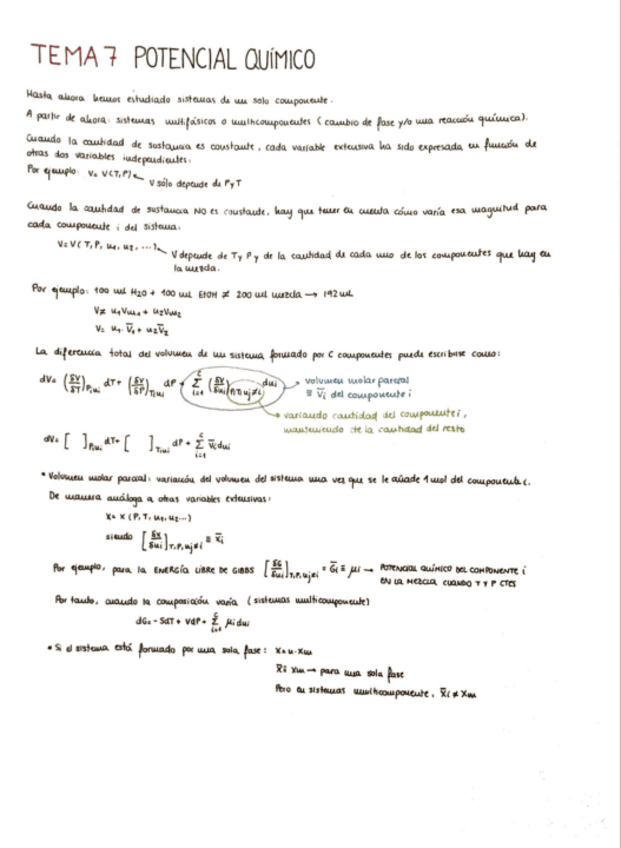 TEMA 7 POTENCIAL QUÍMICO
Hasta ahora hemos estudiado sistemas de un solo componente.
A partir de ahora: sistemas multifásicos o multicomponentes (cambio de fase y/o una reacción química).
Cuando la cantidad de sustancia es constante, cada variable extensiva ha sido expresada en función de
otras dos variables independientes.
Por ejemplo: V= V(T,P) ← V sólo depende de P y T
Cuando la cantidad de sustancia NO es constante, hay que tener en cuenta cómo varía esa magnitud para
cada componente i del sistema.
V=V( T, P, n₁, n₂, ...) ← V depende de T y P y de la cantidad de cada uno de los componentes que hay en
la mezcla.
Por ejemplo: 100 ml H2O + 100 ml EtOH ≠ 200 ml mezcla → 192 ml
V≠ n₁Vm,₁ + n₂Vm₂
V= n₁·V̄₁ + n₂V̄₂
La diferencia total del volumen de un sistema formado por C componentes puede escribirse como:
dV= (δV/δT)P,ni dT+ (δV/δP)T,ni dP + Σ(i=1, C) (δV/δni)P,T,nj≠i dni → volumen molar parcial
≡ V̄i del componente i
→ variando cantidad del componente i,
manteniendo cte la cantidad del resto
dV= [ ]P,ni dT+ [ ]T,ni dP + Σ(i=1, C) V̄i dni
• Volumen molar parcial: variación del volumen del sistema una vez que se le añade 1 mol del componente i.
De manera análoga a otras variables extensivas:
X= X (P, T, n₁, n₂...)
siendo [δX/δni]T,P,nj≠i ≡ X̄i
Por ejemplo, para la ENERGÍA LIBRE DE GIBBS [δG/δni]T,P,nj≠i = Ḡi ≡ μi → POTENCIAL QUÍMICO DEL COMPONENTE i
EN LA MEZCLA CUANDO T Y P CTES
Por tanto, cuando la composición varía (sistemas multicomponente)
dG= - SdT + VdP + Σ(i=1, C) μi dni
• Si el sistema está formado por una sola fase: X= n · Xm
X̄ ≡ Xm → para una sola fase
Pero en sistemas multicomponente, X̄i ≠ Xm